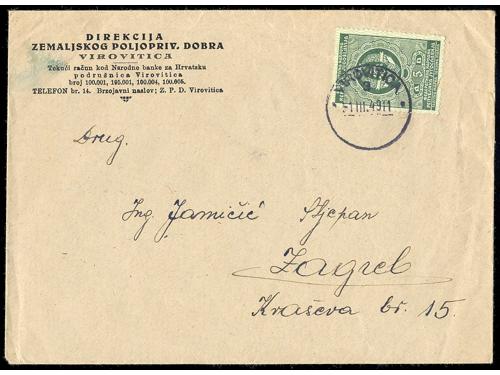 DIREKCIJA
ZEMALJSKOG POLJOPRIV. DOBRA
VIROVITICA
Tekući račun kod Narodne banke za Hrvatsku
podružnica Virovitica
broj 100.001, 195.001, 100.004, 100.005.
TELEFON br. 14. Brzojavni naslov; Z. P. D. Virovitica
VIROVITICA
Drug.
Ing. Jamičić Stjepan
Zagreb
Kraševa br. 15.